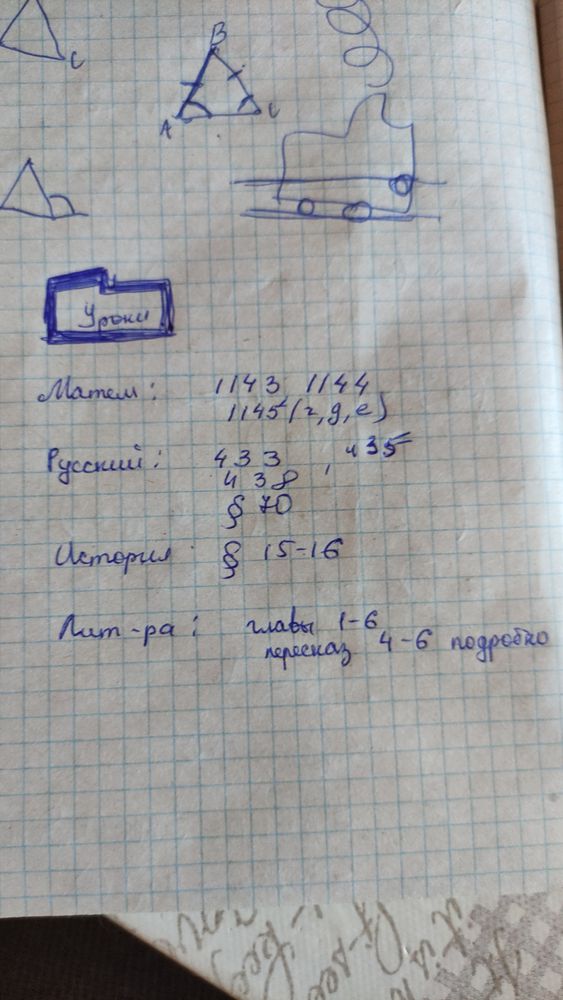 C
B
A C
Уроки
Матем: 1143 1144
1145 (г, д, е)
Русский: 433, 435
438
§ 70
История § 15-16
Лит-ра: главы 1-6
пересказ 4-6 подробно